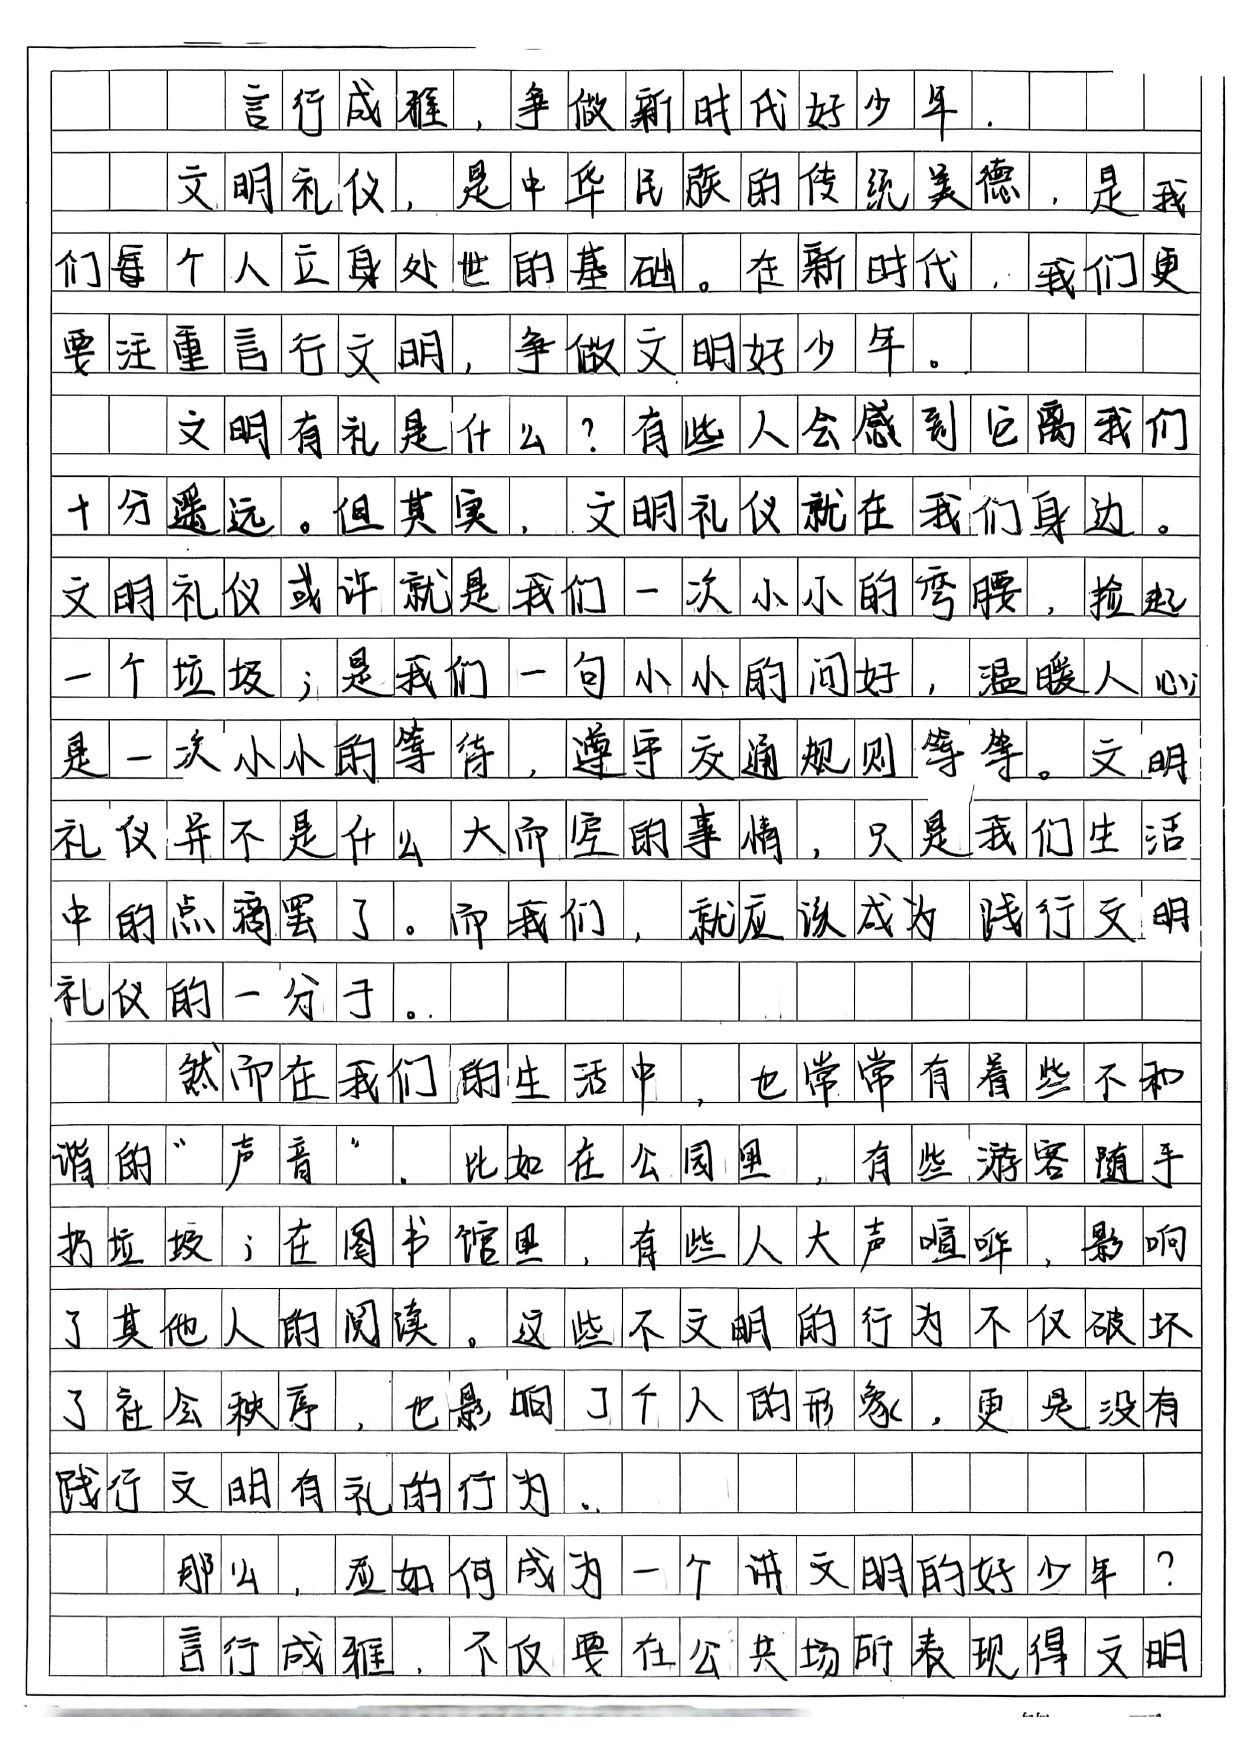 言行成雅，争做新时代好少年.
文明礼仪，是中华民族的传统美德，是我
们每个人立身处世的基础。在新时代，我们更
要注重言行文明，争做文明好少年。
文明有礼是什么？有些人会感到它离我们
十分遥远。但其实，文明礼仪就在我们身边。
文明礼仪或许就是我们一次小小的弯腰，捡起
一个垃圾；是我们一句小小的问好，温暖人心；
是一次小小的等待，遵守交通规则等等。文明
礼仪并不是什么大而空的事情，只是我们生活
中的点滴罢了。而我们，就应该成为践行文明
礼仪的一分子。
然而在我们的生活中，也常常有着些不和
谐的“声音”．比如在公园里，有些游客随手
扔垃圾；在图书馆里，有些人大声喧哗，影响
了其他人的阅读。这些不文明的行为不仅破坏
了社会秩序，也影响了个人的形象，更是没有
践行文明有礼的行为．
那么，应如何成为一个讲文明的好少年？
言行成雅，不仅要在公共场所表现得文明